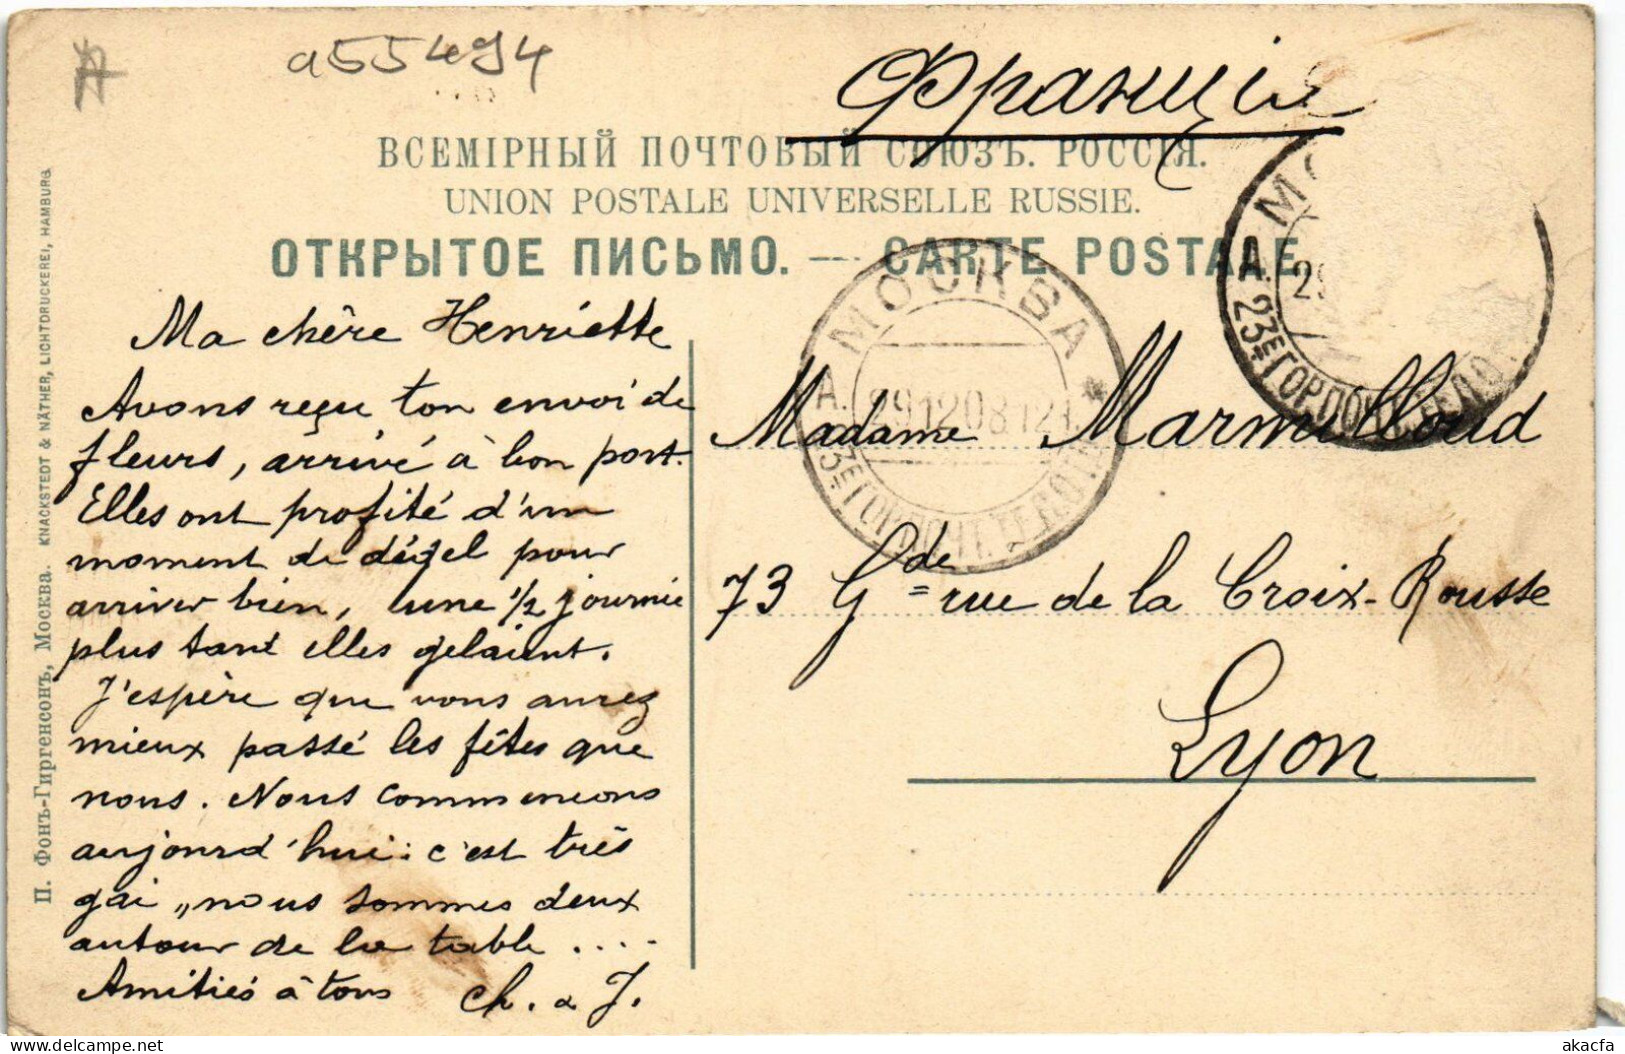 a55494
Франція
ВСЕМІРНЫЙ ПОЧТОВЫЙ СОЮЗЪ. РОССІЯ.
UNION POSTALE UNIVERSELLE RUSSIE.
ОТКРЫТОЕ ПИСЬМО. — CARTE POSTALE
П. Фонъ-Гиргенсонъ, Москва. KNACKSTEDT & NÄTHER, LICHTDRUCKEREI, HAMBURG
Ma chère Henriette
Avons reçu ton envoi de
fleurs, arrivé à bon port.
Elles ont profité d'un
moment de dégel pour
arriver bien, une 1/2 journée
plus tard elles gelaient.
J'espère que vous aurez
mieux passé les fêtes que
nous. Nous commençons
aujourd'hui : c'est très
gai „ nous sommes deux
autour de la table ....
Amitiés à tous Ch. & J.
МОСКВА
А. 29 12 08 12
23Е ГОР. ПОЧТ. ТЕЛ. ОТД.
МО
29
23Е ГОР. ПОЧ
Madame Marmilloud
73 Gde rue de la Croix-Rousse
Lyon
akacfa